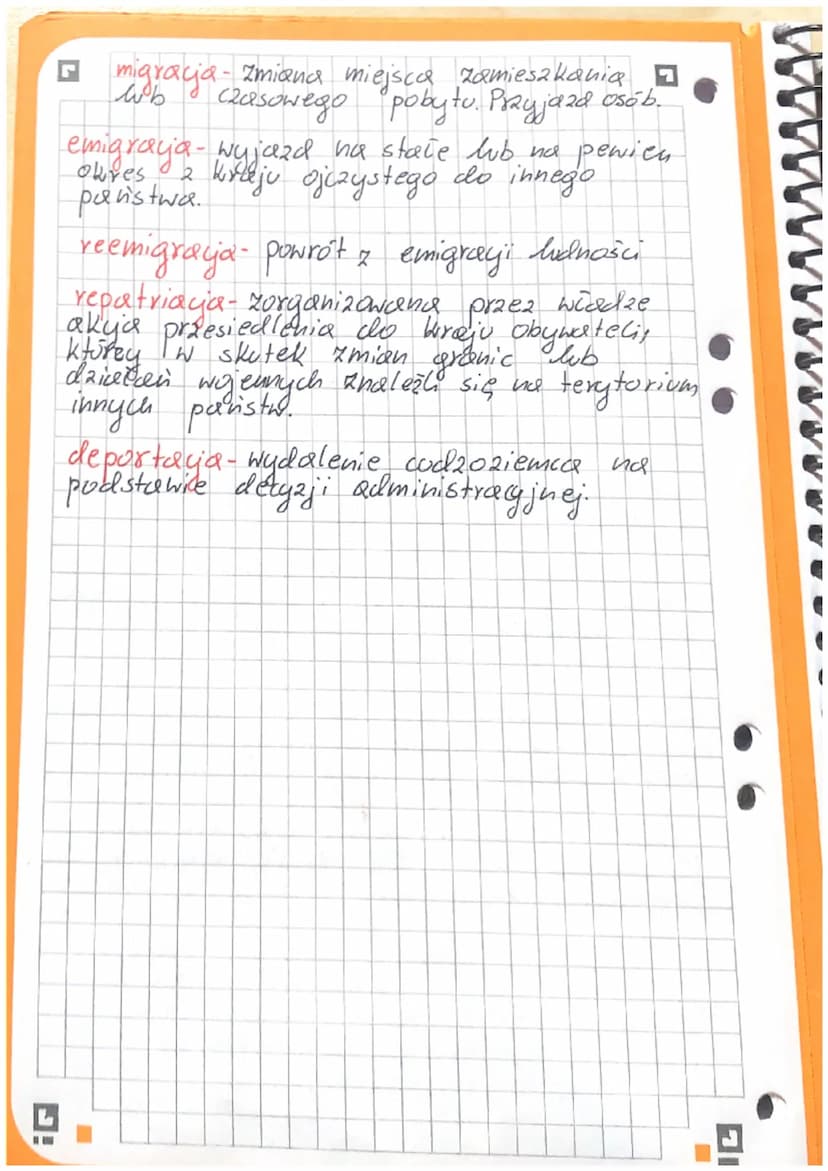 migracja - zmiana miejsca zamieszkania
lub czasowego pobytu. Przyjazd osób.
emigracja - wyjazd na stałe lub na pewien
okres z kraju ojczystego do innego
państwa.
reemigracja - powrót z emigracji ludności
repatriacja - zorganizowana przez władze
akcja przesiedlenia do kraju obywateli,
którzy w skutek zmian granic lub
działań wojennych znaleźli się na terytorium
innych państw.
deportacja - wydalenie cudzoziemca na
podstawie decyzji administracyjnej.